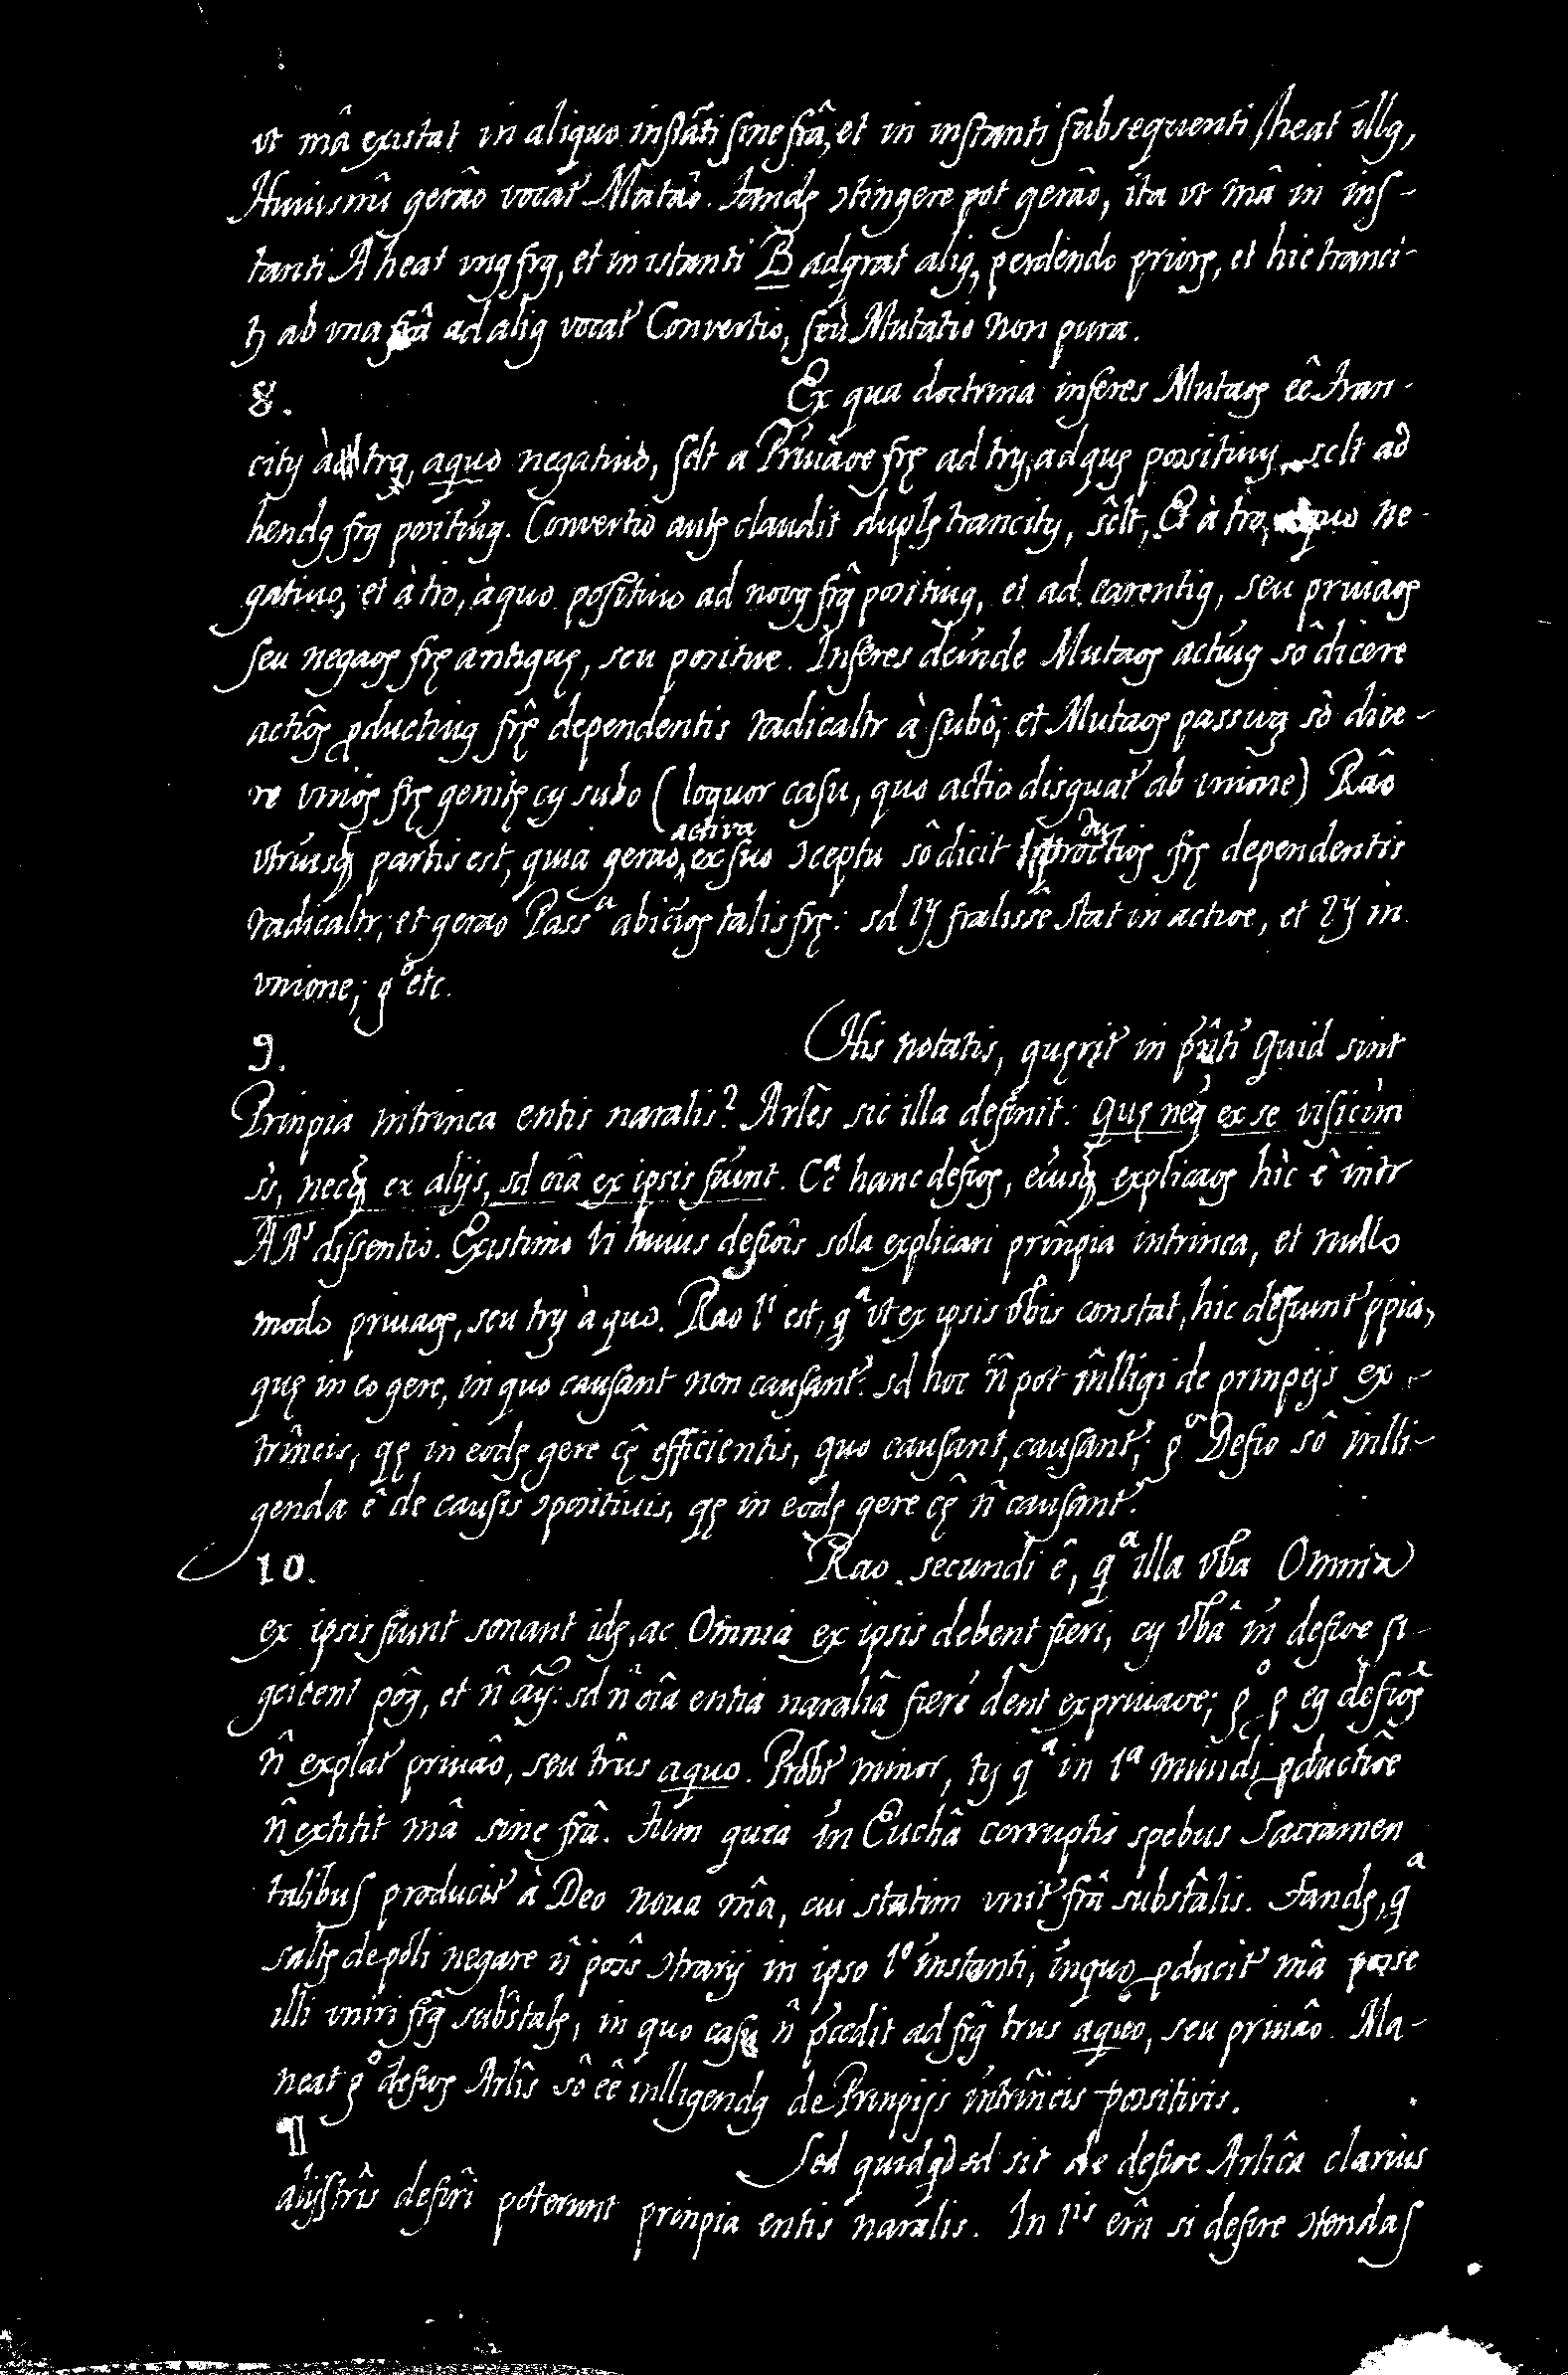 vt mâ existat in aliquo instãti sine frâ, et in instanti subsequenti heat illã,
Huiusmi gerâo vocat' Mutâo. tandę ɔtingere pot gerâo, ita vt mâ in ins-
tanti A heat unã frã, et in istanti B adqrat aliã, perdendo priorę, et hic transi-
tꝫ ab una frâ ad aliã vocat' Convertio, seù Mutatio non pura.
8. Ex qua doctrina inferes Mutaoę eê tran-
city à trõ, aquo negativo, sclt a Priuãoe frę ad try, ad quę possitiuy, sclt ad
hendã frã positiuã. Convertio autę claudit duplę trancity, sclt, Et à tro, aquo ne-
gatiuo, et à tro, àquo possitiuo ad nouã frã positiuã, et ad carentiã, seu priuaoę
seu negaoę frę antiquę, seu positiue. Inferes deinde Mutaoę actiuã sô dicere
actiôę ꝓductiuã frę dependentis radicaltr à subô; et Mutaoę passiuã sô dice-
re unioę frę genitę cy subo (loquor casu, quo actio disguat' ab unione) Raô
vtriusq partis est, quia gerao activa ex suo ɔceptu sô dicit productioę frę dependentis
radicaltr; et gerao Pass.ª talis frę: sd 1y fralissê stat in actioe, et 2y in
vnione; gº etc.
9. His notatis, quęrit' in pñti Quid sint
Prinpia intrinca entis naralis? Arlês sic illa definit: Quę neq ex se visicim
s, necq ex alijs, sd oiâ ex ipsis fiunt. Cª hanc defioę, eiusq explicaoę hic ê intr
AA' dissentio. Existimo vi huius defiois sola explicari prinpia intrinca, et nullo
modo priuaoę, seu try à quo. Rao 1ⁱ est, qª vt ex ipsis vbis constat, hic defiunt' ppia,
quę in eo gere, in quo causant non causant': sd hoc ñ pot intlligi de prinpijs ex-
trincis, qę in eodę gere cę efficientis, quo causant, causant'; gº Defio sô intlli-
genda ê de causis ɔpositiuis, qę in eodę gere cę ñ causant'.
10. Rao secundi ê, qª illa vba Omnia
ex ipsis fiunt sonant idę, ac Omnia ex ipsis debent fieri, cy vbâ in defioe si-
gcitent põã, et ñ ay: sd ñ oiâ entia naraliâ fieri dent ex priuaoe; gº p eã defioę
ñ explat' priuâo, seu trîus aquo. Probt' minor, ty qª in 1ª mundi ꝓductiôe
ñ extitit mâ sine frâ. tum quia in Euchâ corruptis spebus Sacramen
talibus producit' à Deo noua mâ, cui statim vnit' frâ substâlis. Tandę, qª
saltę de pôli negare ñ poss ɔtrarij in ipso 1º instanti, inquo ꝓducit' mâ posse
illi vniri frã substalę, in quo casu ñ pcedit ad frã trus aquo, seu priuâo. Ma-
neat gº defioę Arlis sô eê intlligendã de Prinpijs intrincis possitivis.
¶ Sed quidqd sit de defioe Arlicâ clarius
alijs trîs defiri poterunt prinpia entis naralis. In 1ⁱˢ enî si defire ɔtendas